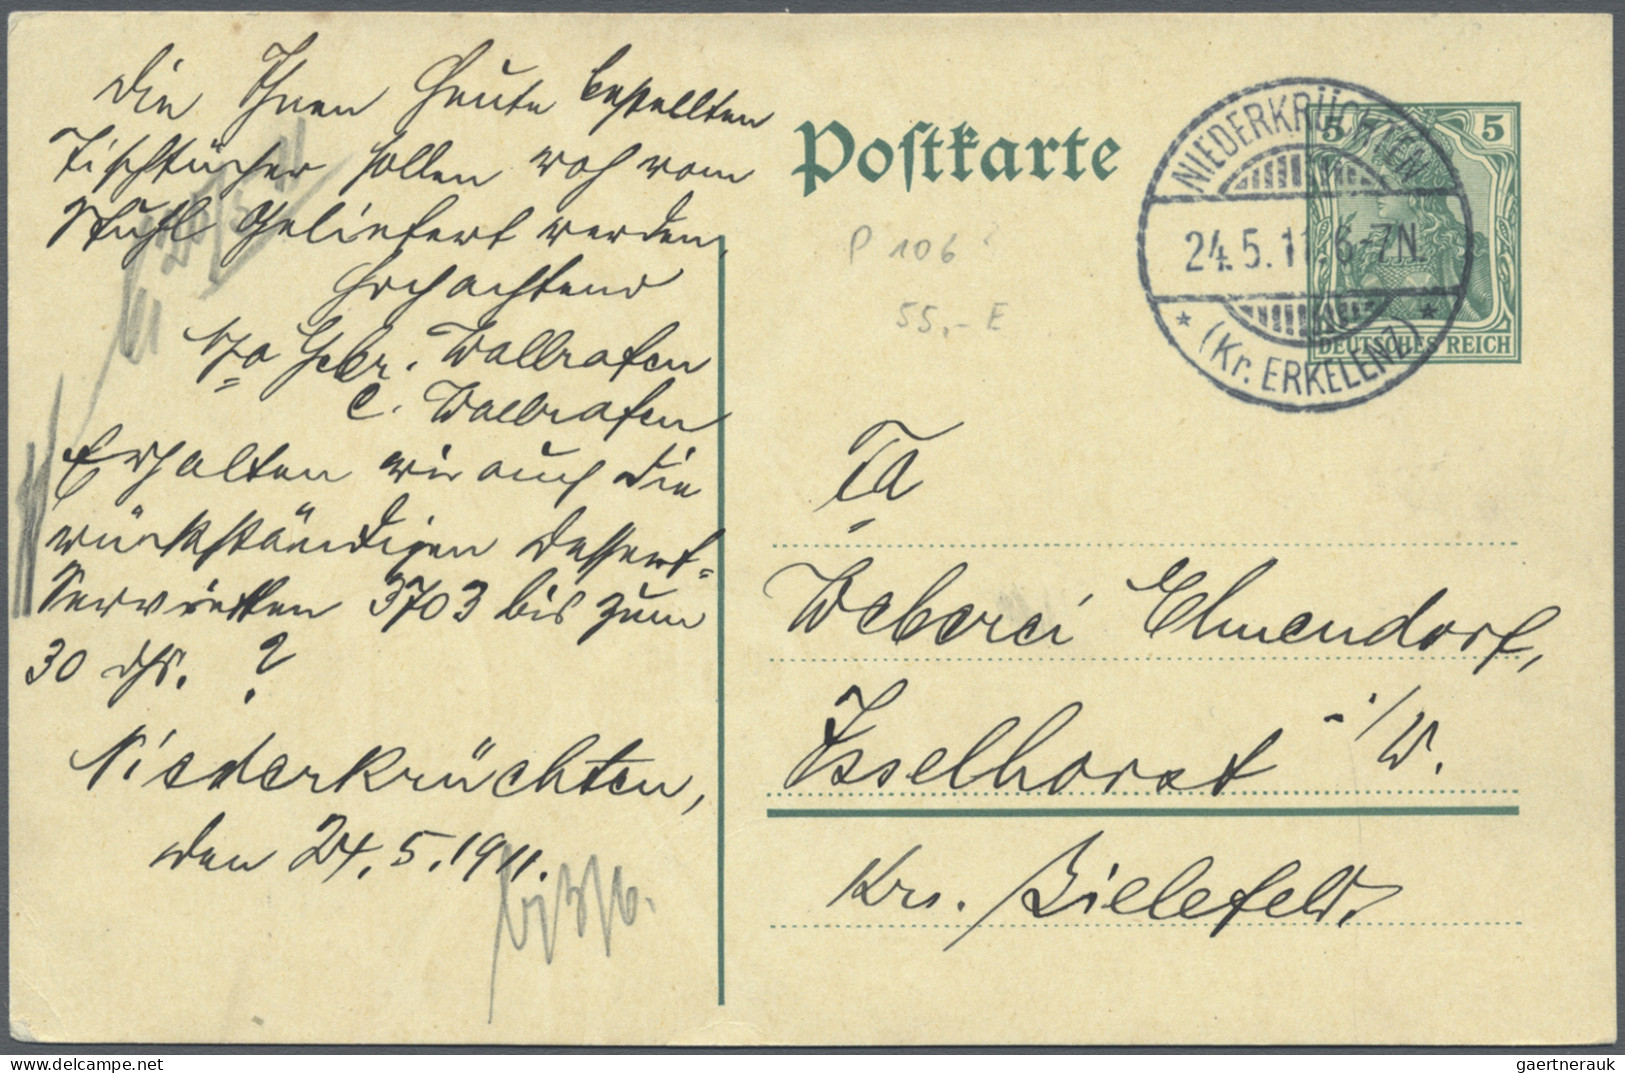 Die Ihnen heute bestellten
Tischtücher sollen roh vom
Stuhl geliefert werden,
Hochachtend
ppa Gebr. Wallrafen
C. Wallrafen
Erhalten wir auch die
rückständigen Dessert-
Servietten 3703 bis zum
30 ds. ?
Niederkrüchten,
den 24.5.1911.
Postkarte
P 106
55,- E
NIEDERKRÜCHTEN
24.5.11.6-7N.
* (Kr. ERKELENZ) *
5 5
DEUTSCHES REICH
Fa
Weberei Elmendorf,
Isselhorst i/W.
Krs. Bielefeld.
gaertnerauk